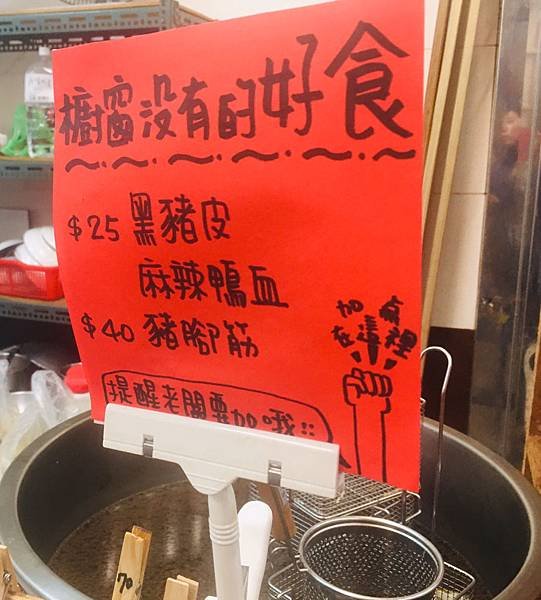 櫥窗没有的好食
$25 黑豬皮
麻辣鴨血
$40 豬腳筋
加 點
在這裡
提醒老闆要加哦!!
70